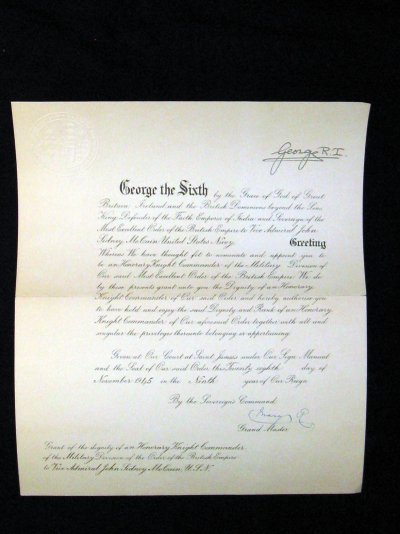 George R.I.
George the Sixth by the Grace of God of Great
Britain, Ireland and the British Dominions beyond the Seas
King, Defender of the Faith, Emperor of India and Sovereign of the
Most Excellent Order of the British Empire to Vice Admiral John
Sidney McCain United States Navy Greeting
Whereas We have thought fit to nominate and appoint you to
be an Honorary Knight Commander of the Military Division of
Our said Most Excellent Order of the British Empire. We do
by these presents grant unto you the Dignity of an Honorary
Knight Commander of Our said Order and hereby authorise you
to have hold and enjoy the said Dignity and Rank of an Honorary
Knight Commander of Our aforesaid Order together with all and
singular the privileges thereunto belonging or appertaining.
Given at Our Court at Saint James's under Our Sign Manual
and the Seal of Our said Order this Twenty eighth day of
November 1945 in the Ninth year of Our Reign.
By the Sovereign's Command.
Grand Master
Grant of the dignity of an Honorary Knight Commander
of the Military Division of the Order of the British Empire
to Vice Admiral John Sidney McCain, U.S.N.